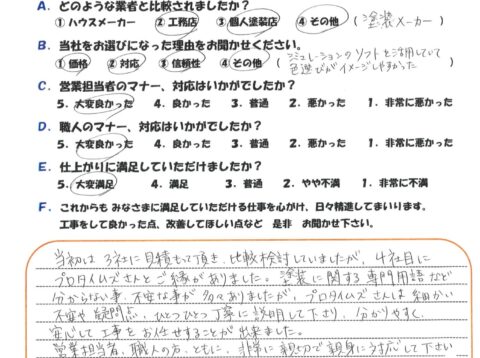 A. どのような業者と比較されましたか？
① ハウスメーカー ② 工務店 ③ 個人塗装店 ④ その他 （塗装メーカー）
B. 当社をお選びになった理由をお聞かせください。
① 価格 ② 対応 ③ 信頼性 ④ その他 （シミュレーションのソフトを活用していて
色選びがイメージしやすかった）
C. 営業担当者のマナー、対応はいかがでしたか？
5. 大変良かった 4. 良かった 3. 普通 2. 悪かった 1. 非常に悪かった
D. 職人のマナー、対応はいかがでしたか？
5. 大変良かった 4. 良かった 3. 普通 2. 悪かった 1. 非常に悪かった
E. 仕上がりに満足していただけましたか？
5. 大変満足 4. 満足 3. 普通 2. やや不満 1. 非常に不満
F. これからも みなさまに満足していただける仕事を心がけ、日々精進してまいります。
工事をして良かった点、改善してほしい点など 是非 お聞かせ下さい。
当初は3社に見積もって頂き、比較検討していましたが、4社目に
プロタイムズさんとご縁がありました。塗装に関する専門用語など
分からない事、不安な事が多々ありましたが、プロタイムズさんは細かい
不安や疑問点、ひとつひとつ丁寧に説明して下さり、分かりやすく、
安心して工事をお任せすることが出来ました。
営業担当者、職人の方、ともに、非常に親切で親身にうち応じて